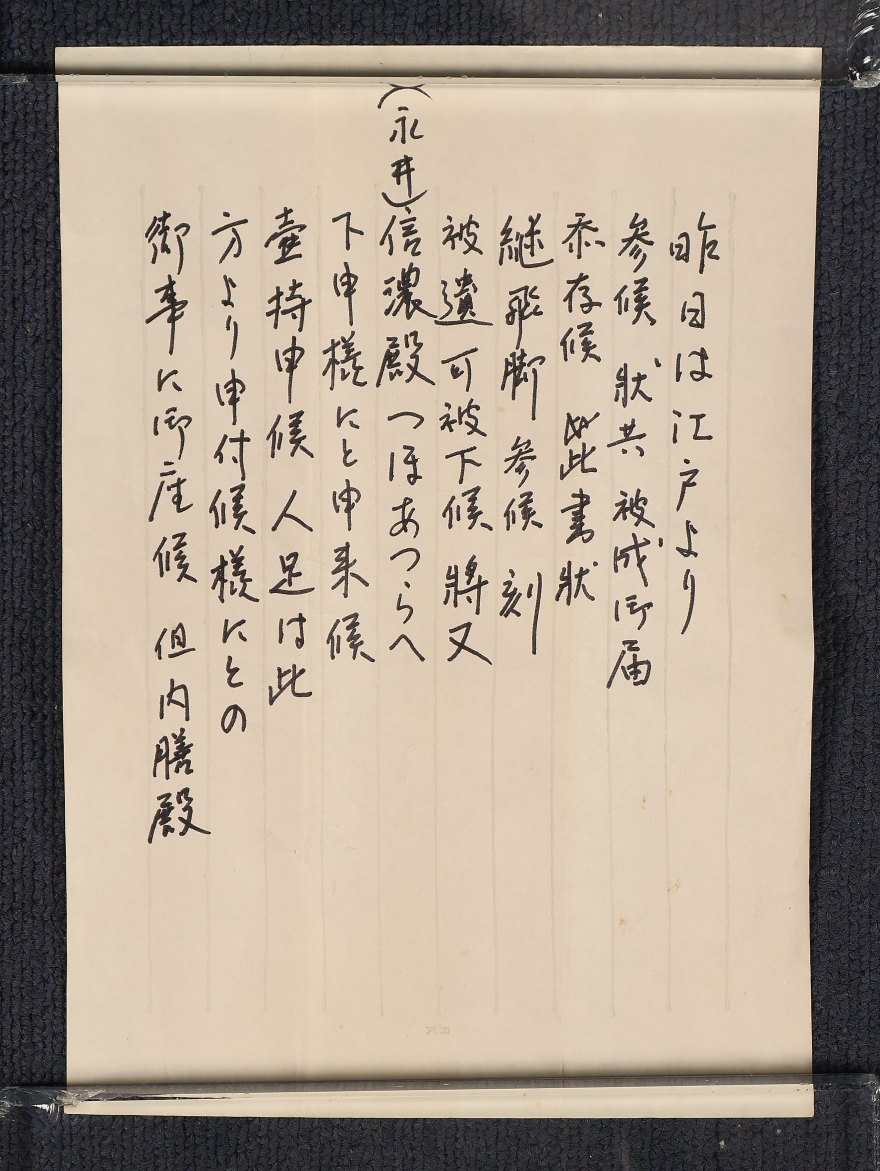 昨日は江戸より
参候 狀共 被成御届
忝存候 此書狀
継飛脚 参候 刻
被遺可被下候 將又
(永井)信濃殿つほあつらへ
下申様にと申来候
壺持申候 人足は此
方より申付候様にとの
御事に御座候 但内膳殿